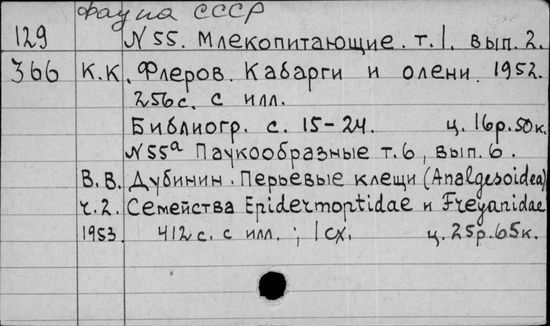 фауна СССР
129 N 55. Млекопитающие. т.1. вып. 2.
366 К.К. Флеров. Кабарги и олени. 1952.
256с. с илл.
Библиогр. с. 15-24. ц. 16р.50к.
N 55ª Паукообразные т.6, вып. 6.
В.В. Дубинин. Перьевые клещи (Analgesoidea)
ч.2. Семейства Epidermoptidae и Freyanidae
1953. 412с. с илл.; 1сх. ц. 25р.65к.